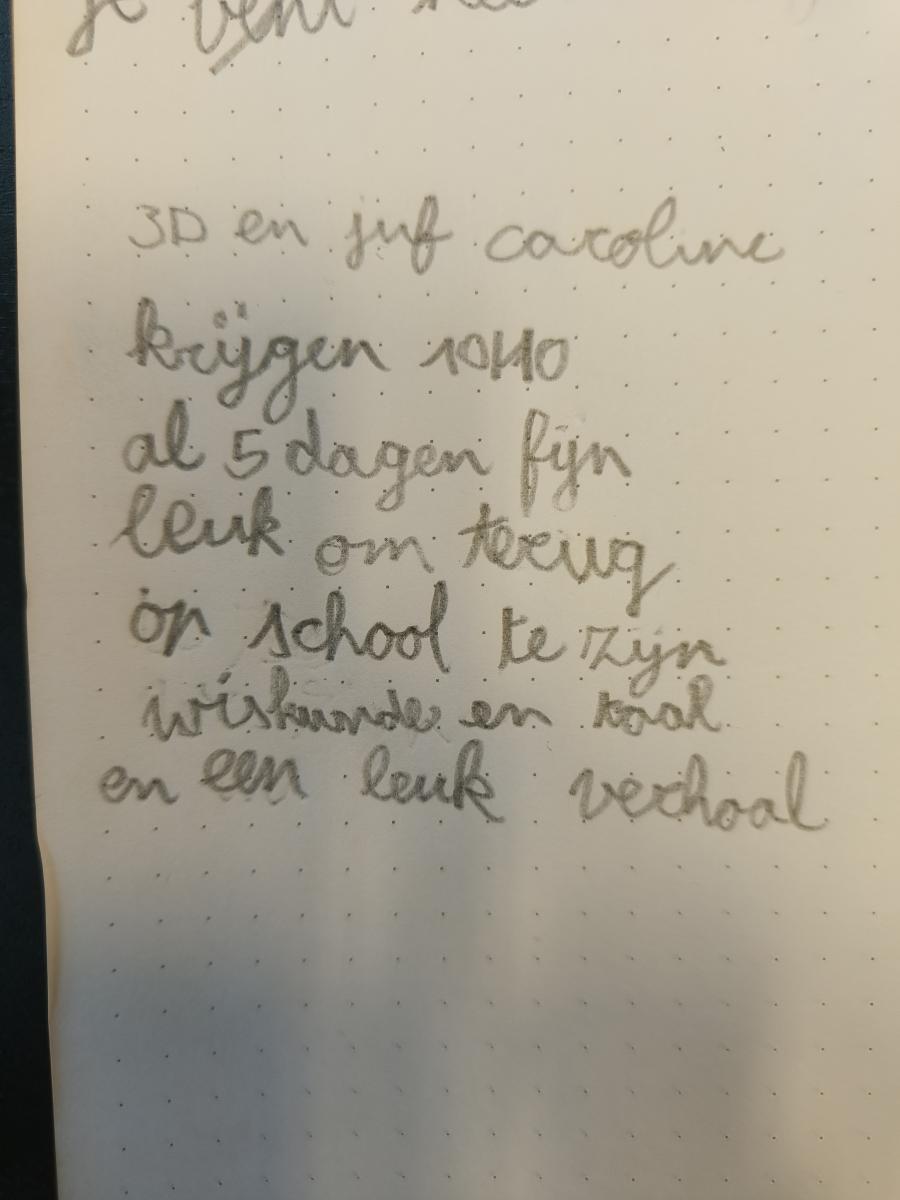 je bent
3D en juf caroline
krijgen 10/10
al 5 dagen fijn
leuk om terug
op school te zijn
wiskunde en taal
en een leuk verhaal